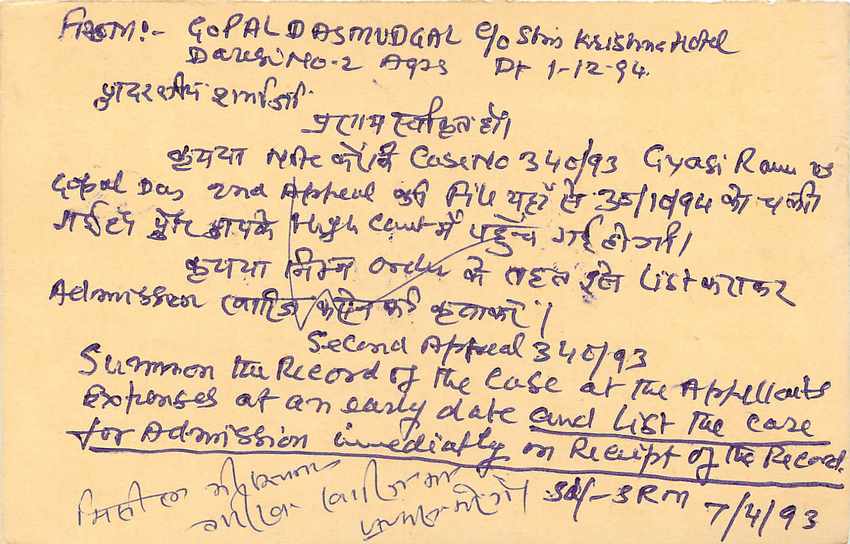 From:- GOPAL DASMUDGAL C/o Shri Krishna Hotel
Daresi No-2 Agra Dt 1-12-94.
आदरणीय शर्माजी
प्रणाम स्वीकृत हो।
कृपया Note करें कि Case No 340/93 Gyasi Ram vs
Gopal Das 2nd Appeal की File यहाँ से 35/10/94 को चली
गई है और आपके High Court में पहुँच गई होगी।
कृपया निम्न order के तहत इसे List कराकर
Admission खारिज करने की कृपा करें।
Second Appeal 340/93
Summon the Record of the Case at the Appellants
Expenses at an early date and List The case
for Admission immediatly on Receipt of The Record.
Sd/- SRM
7/4/93